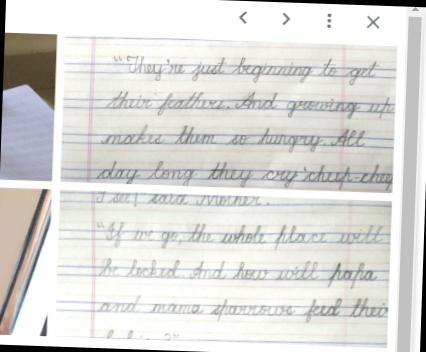 "They're just beginning to get
their feathers. And growing up
makes them so hungry. All
day long they cry 'cheep-cheep
I see, said Mother.
"If we go, the whole place will
be locked. And how will papa
and mama sparrows feed their